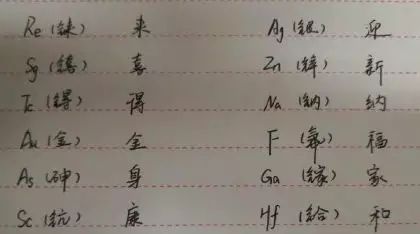 Re (铼) 来 Ag (银) 迎
Sg (𬭳) 喜 Zn (锌) 新
Tc (锝) 得 Na (钠) 纳
Au (金) 金 F (氟) 福
As (砷) 身 Ga (镓) 家
Sc (钪) 康 Hf (铪) 和